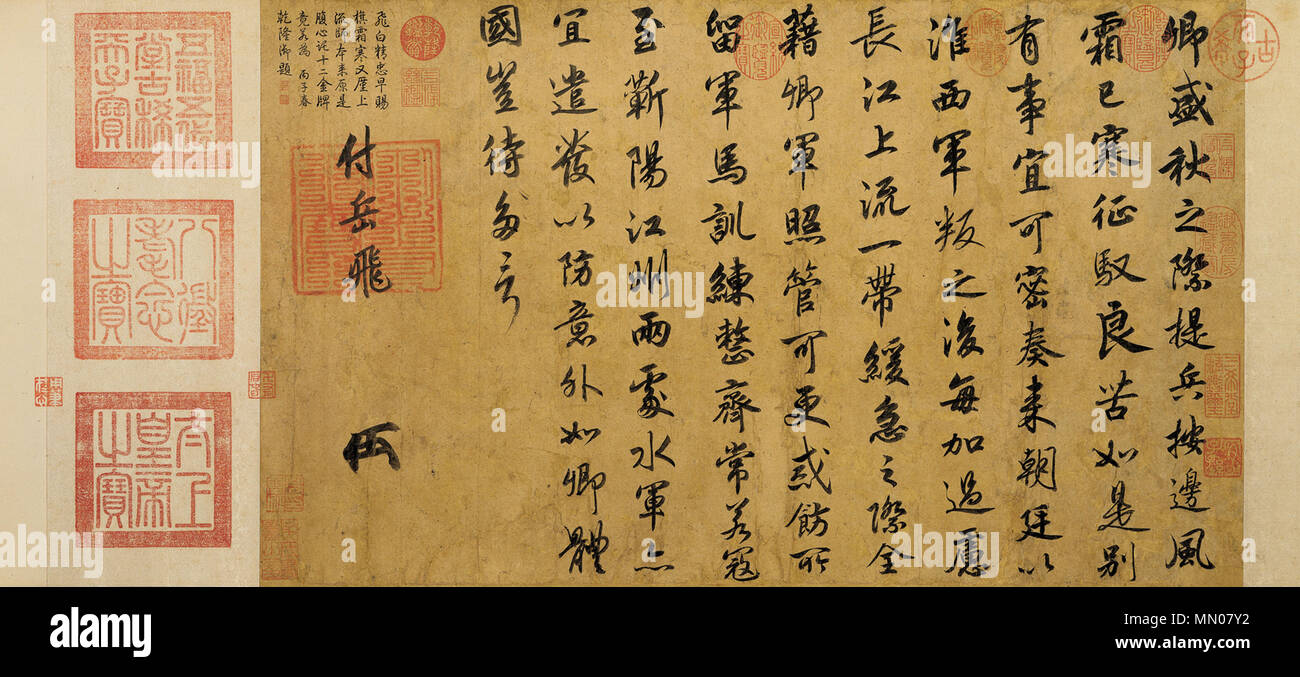 卿盛秋之際提兵按邊風
霜已寒征馭良苦如是別
有事宜可密奏來朝廷以
淮西軍叛之後每加過慮
長江上流一帶緩急之際全
藉卿軍照管可更戒飭所
留軍馬訓練整齊常若寇
至蘄陽江州兩處水軍亦
宜遣發以防意外如卿體
國豈待多言
付岳飛
飛白精忠早賜
旗霜寒又歷上
游師本來原是
腹心託十二金牌
竟若為 丙子春
乾隆御題
五福五代
堂古稀
天子寶
八徵
耄念
之寶
太上
皇帝
之寶
古
希
天子
alamy
Image ID: MN07Y2
www.alamy.com